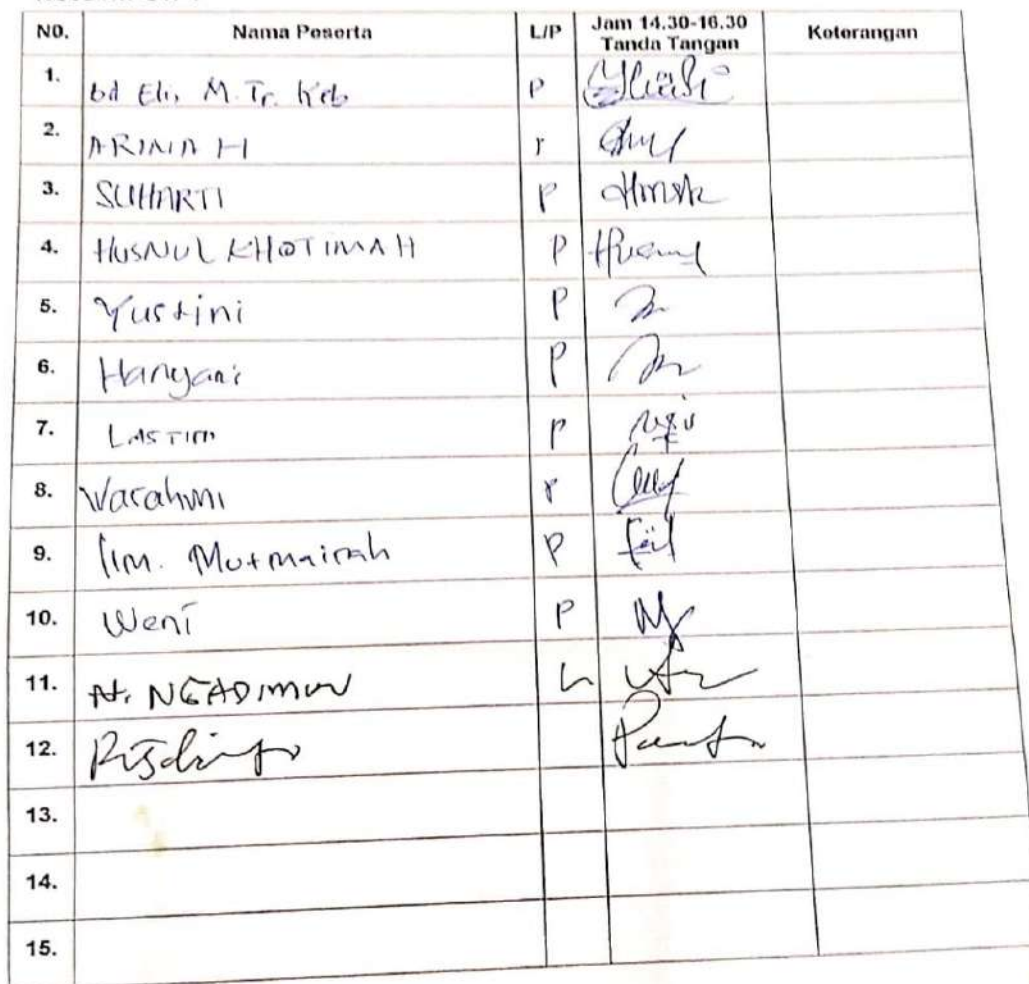 N0. Nama Peserta L/P Jam 14.30-16.30 Tanda Tangan Keterangan
1. bd Eli, M.Tr. Keb P
2. ARINA H P
3. SUHARTI P
4. HUSNUL KHOTIMAH P
5. Yustini P
6. Haryani P
7. LASTITI P
8. Warahmi P
9. Iim. Mutmainah P
10. Weni P
11. H. NGADIMUN L
12.
13.
14.
15.